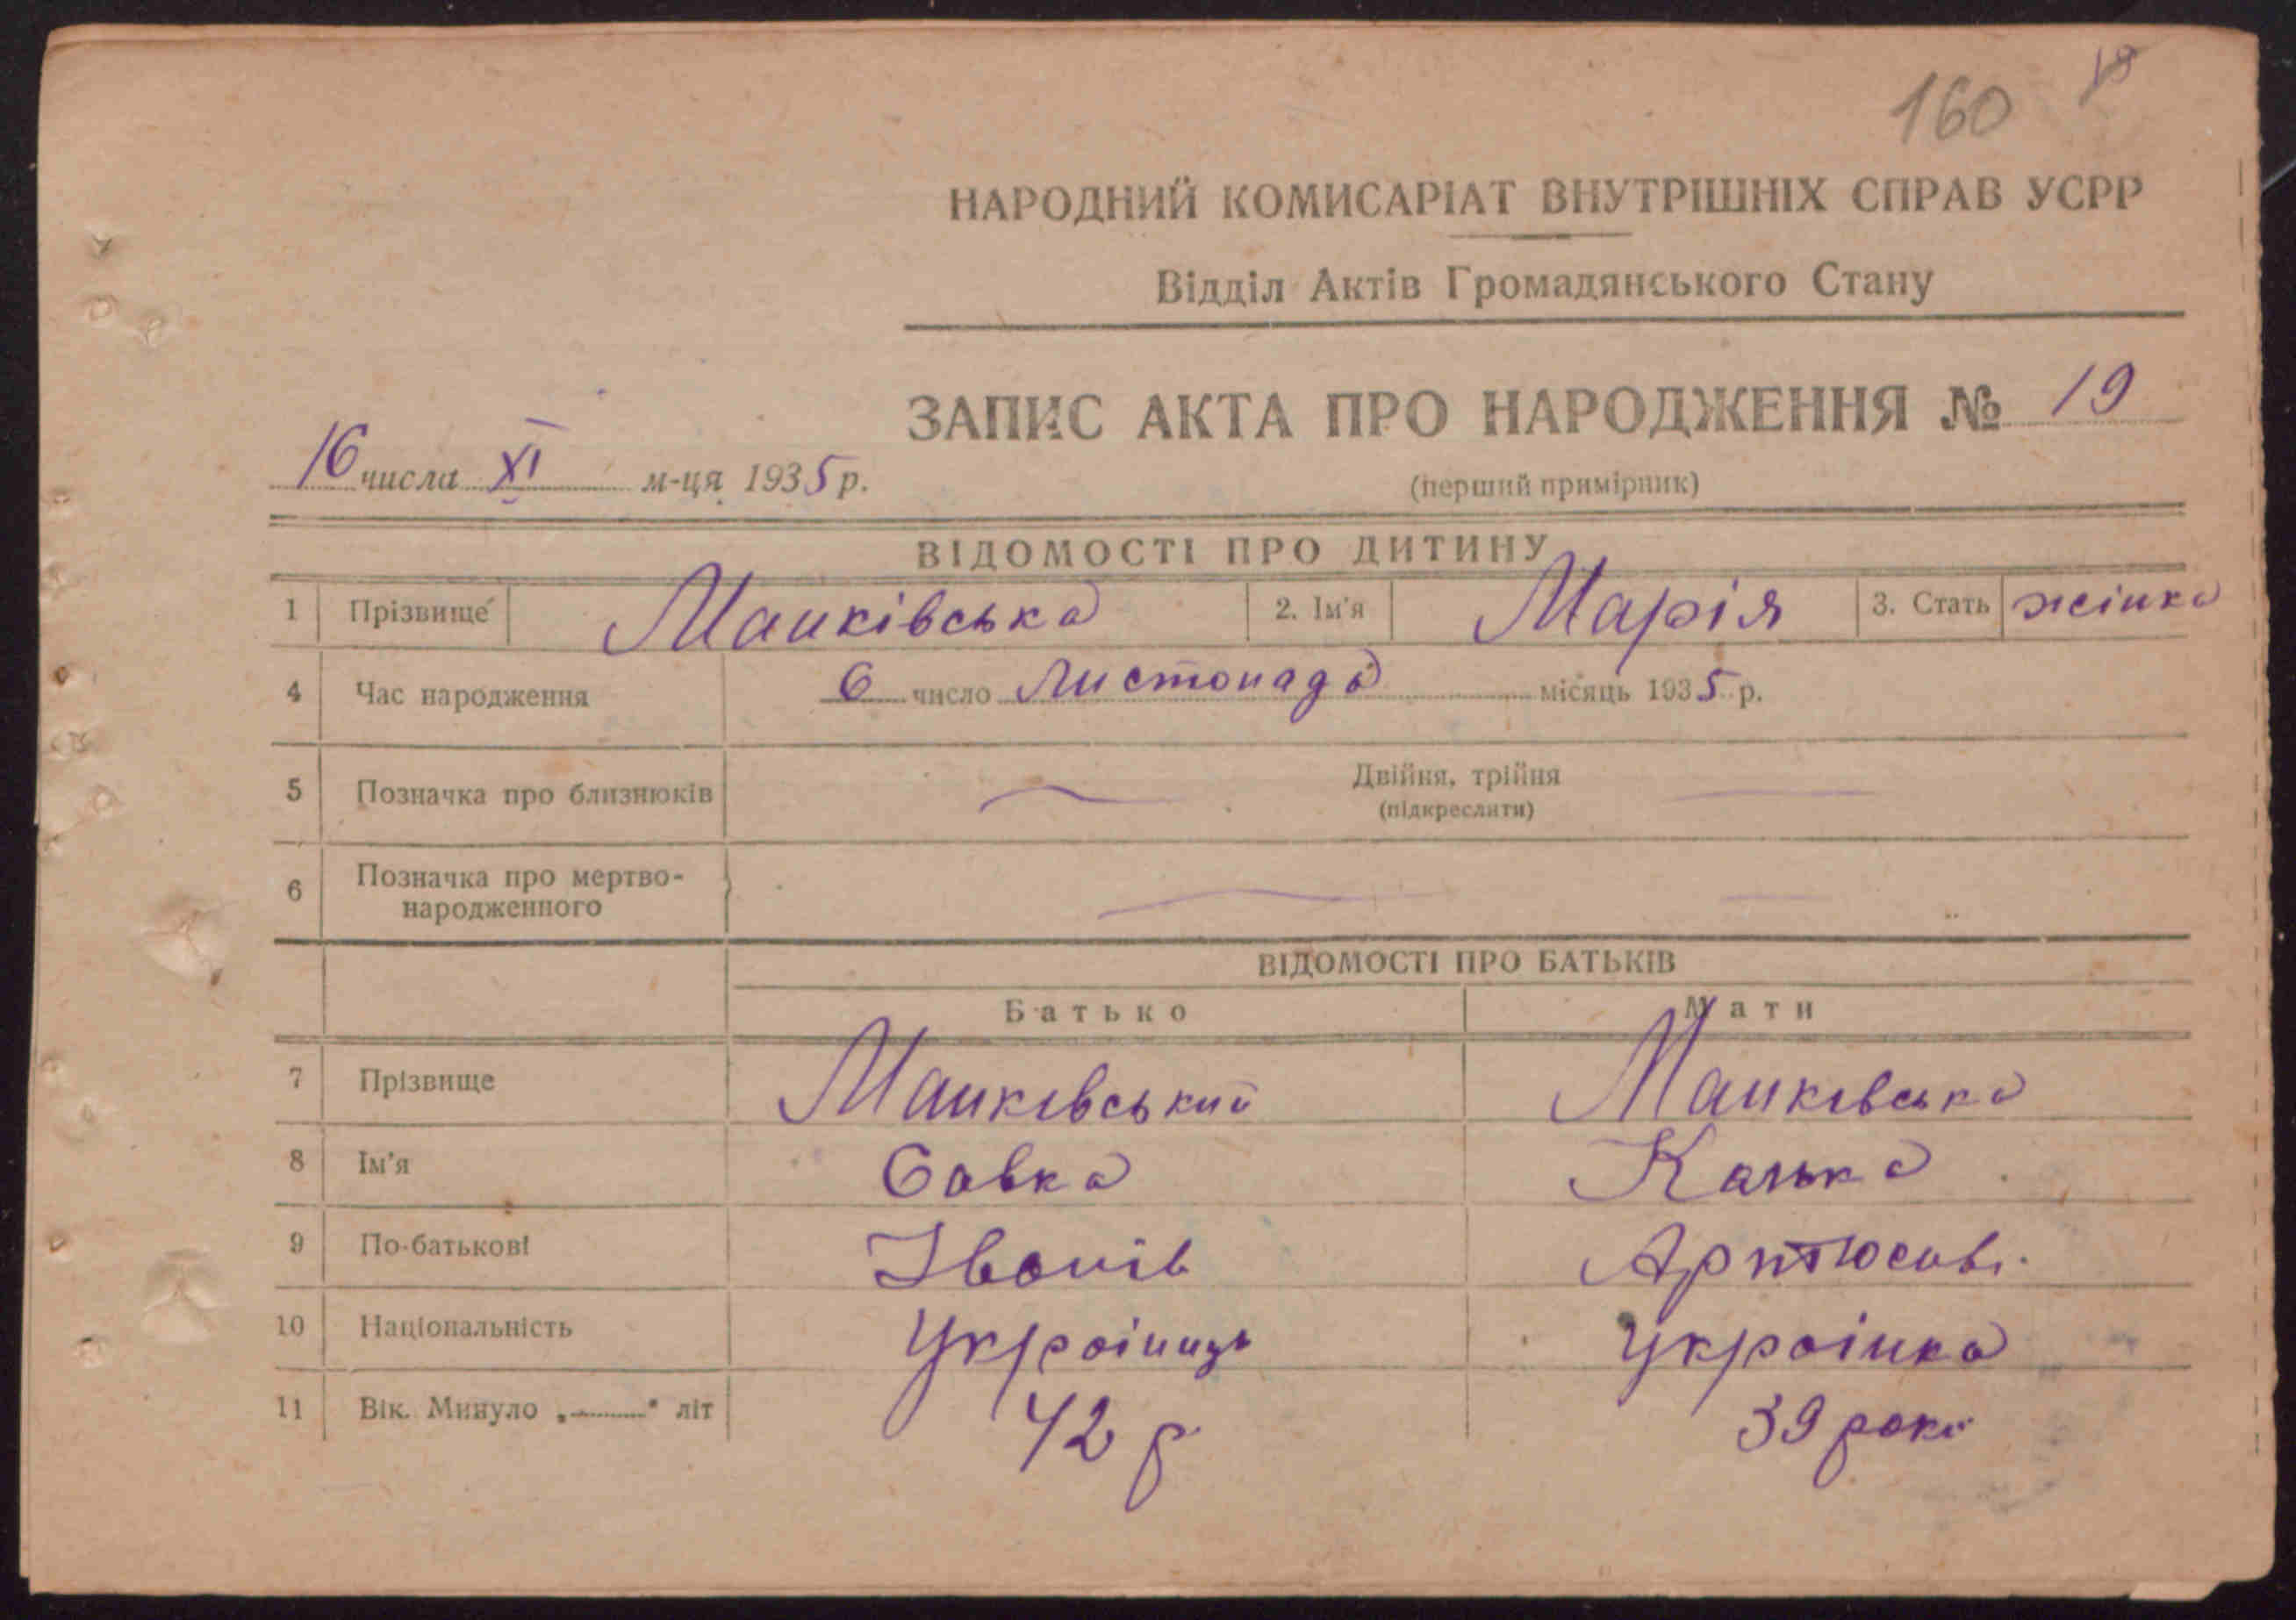 18
160
НАРОДНИЙ КОМИСАРІАТ ВНУТРІШНІХ СПРАВ УСРР
Відділ Актів Громадянського Стану
ЗАПИС АКТА ПРО НАРОДЖЕННЯ № 19
16 числа XI м-ця 1935 р.
(перший примірник)
ВІДОМОСТІ ПРО ДИТИНУ
1 Прізвище Манківська 2. Ім'я Марія 3. Стать жінка
4 Час народження 6 число Листопада місяць 1935 р.
5 Позначка про близнюків Двійня, трійня
(підкреслити)
6 Позначка про мертво-
народженного
ВІДОМОСТІ ПРО БАТЬКІВ
Батько Мати
7 Прізвище Манківський Манківська
8 Ім'я Савка
9 По-батькові Іванів
10 Національність Українець Українка
11 Вік. Минуло „ " літ 42 р 39 років